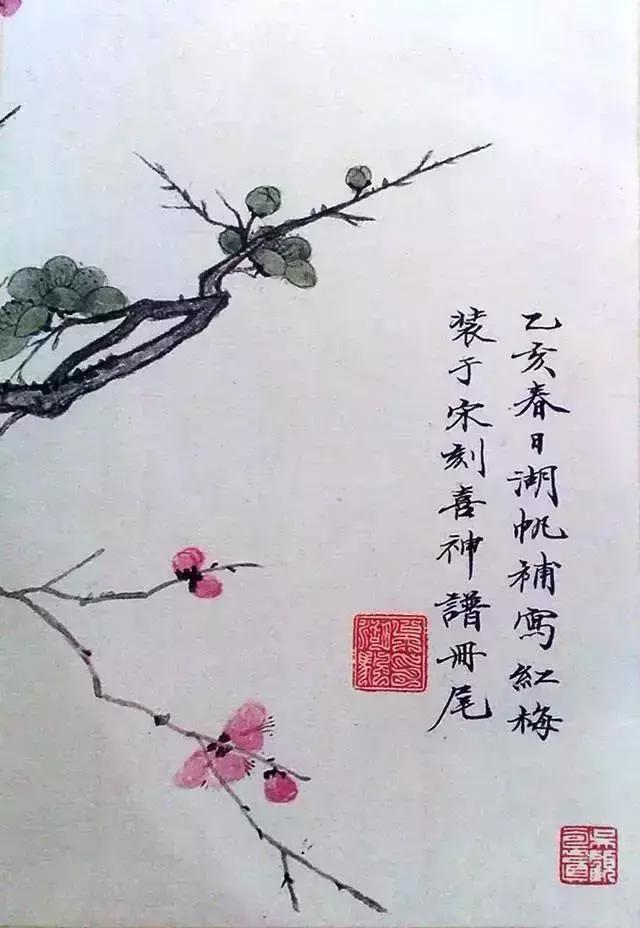 乙亥春日湖帆補寫紅梅
装于宋刻喜神譜冊尾